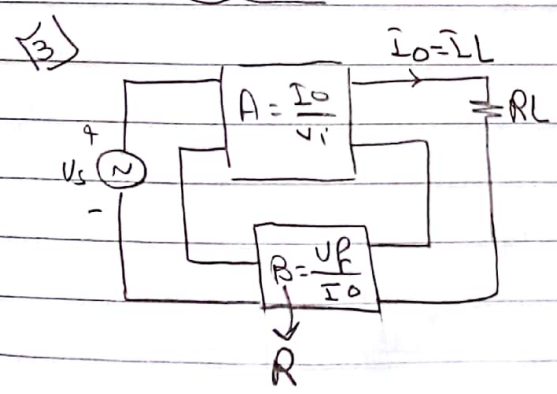 3
Io = IL
A = Io / Vi
RL
+
Vs
~
-
B = Vf / Io
R